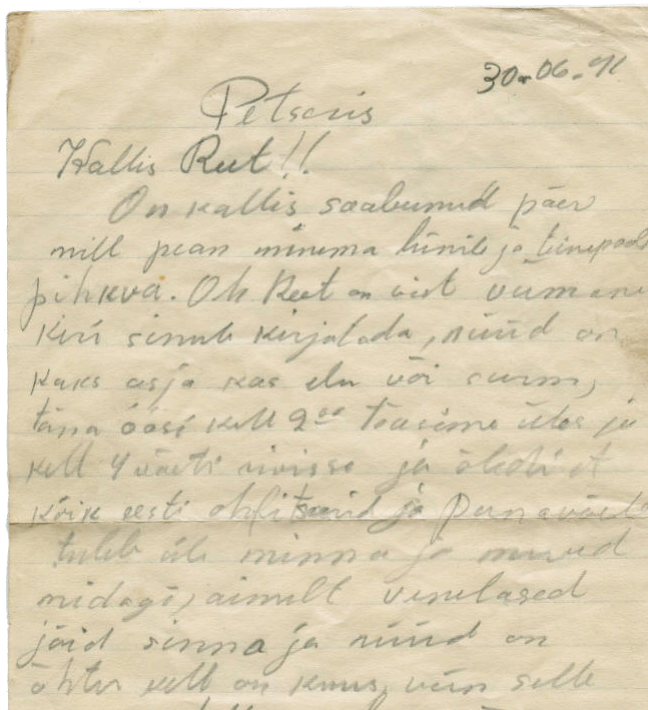 30-06-41
Petseris
Kallis Reet!!
On kallis saabunud päev
mill pean minema liinile ja teinepoole
pihkva. Oh Reet on vist viimane
kiri sinule kirjutada, nüüd on
kaks asja kas elu või surm,
täna öösi kell 2⁰⁰ tõusime üles ja
kell 4 võeti rivisse ja öeldi et
kõik eesti ohfitserid ja
tuleb üle minna ja muud
midagi, ainult venelased
jäid sinna ja nüüd on
õhtu kell on kuus, selle